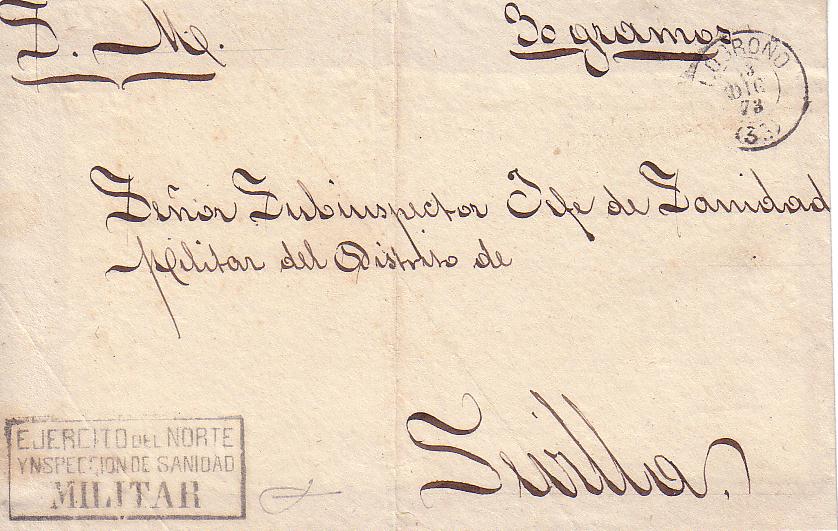 S. M.
30 gramos
LOGROÑO
3
DIC
73
(33)
Señor Subinspector Jefe de Sanidad
Militar del Distrito de
Sevilla.
EJERCITO DEL NORTE
YNSPECCION DE SANIDAD
MILITAR